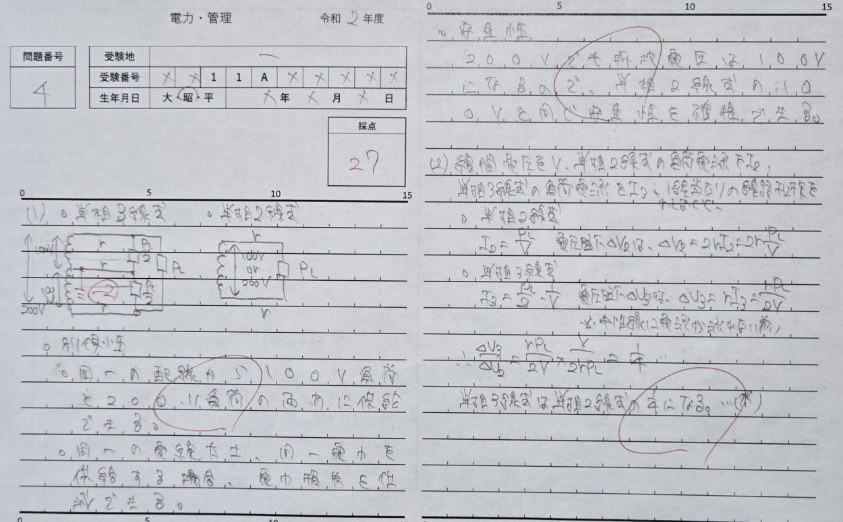 電力・管理 令和 2 年度
問題番号 4
受験地 一
受験番号 × × 1 1 A × × × × ×
生年月日 大・昭・平 × 年 × 月 × 日
採点
27
0 5 10 15
(1) 。単相3線式 。単相2線式
100V r PL/2
r PL
100V r PL/2
200V
-2
r
100V
or
200V
PL
r
。利便性
。同一の配線から100V負荷
と200V負荷の両方に供給
できる。
。同一の電線太さ、同一電力を
供給する場合、電力損失を低
減できる。
0 5 10 15
0 5 10 15
。安全性
200Vでも対地電圧は100V
になるので、単相2線式の10
0Vと同じ安全性を確保できる。
(2) 線間電圧をV、単相2線式の負荷電流をI2、
単相3線式の負荷電流をI3、1線当たりの線路抵抗を
。単相2線式
I2=PL/V 電圧降下ΔV2は、ΔV2=2rI2=2rPL/V
。単相3線式
I3=PL/2・1/V 電圧降下ΔV3は、ΔV3=rI3=rPL/2V
※中性線に電流が流れない為
∴ΔV3/ΔV2=rPL/2V×V/2rPL=1/4…
単相3線式は単相2線式の1/4になる。…(答)
0 5 10 15